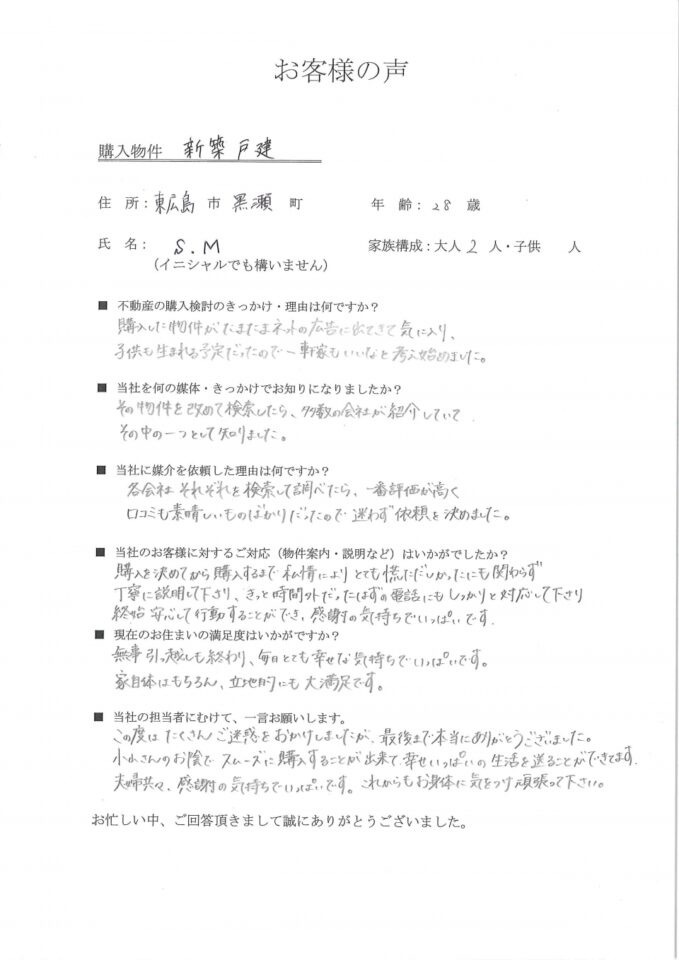 お客様の声
購入物件 新築戸建
住 所：東広島 市 黒瀬 町 年 齢：28 歳
氏 名： S.M 家族構成：大人 2 人・子供 人
（イニシャルでも構いません）
■ 不動産の購入検討のきっかけ・理由は何ですか？
購入した物件がたまたまネットの広告に出てきて気に入り、
子供も生まれる予定だったので一軒家もいいなと考え始めました。
■ 当社を何の媒体・きっかけでお知りになりましたか？
その物件を改めて検索したら、多数の会社が紹介していて
その中の一つとして知りました。
■ 当社に媒介を依頼した理由は何ですか？
各会社それぞれを検索して調べたら、一番評価が高く
口コミも素晴しいものばかりだったので迷わず依頼を決めました。
■ 当社のお客様に対するご対応（物件案内・説明など）はいかがでしたか？
購入を決めてから購入するまで私情によりとても慌ただしかったにも関わらず
丁寧に説明して下さり、きっと時間外だったはずの電話にもしっかりと対応して下さり
終始安心して行動することができ、感謝の気持ちでいっぱいです．
■ 現在のお住まいの満足度はいかがですか？
無事引っ越しも終わり、毎日とても幸せな気持ちでいっぱいです。
家自体はもちろん、立地的にも大満足です。
■ 当社の担当者にむけて、一言お願いします。
この度はたくさんご迷惑をおかけしましたが、最後まで本当にありがとうございました。
小山さんのお陰でスムーズに購入することが出来て幸せいっぱいの生活を送ることができてます．
夫婦共々、感謝の気持ちでいっぱいです。これからもお身体に気をつけ頑張って下さい。
お忙しい中、ご回答頂きまして誠にありがとうございました。